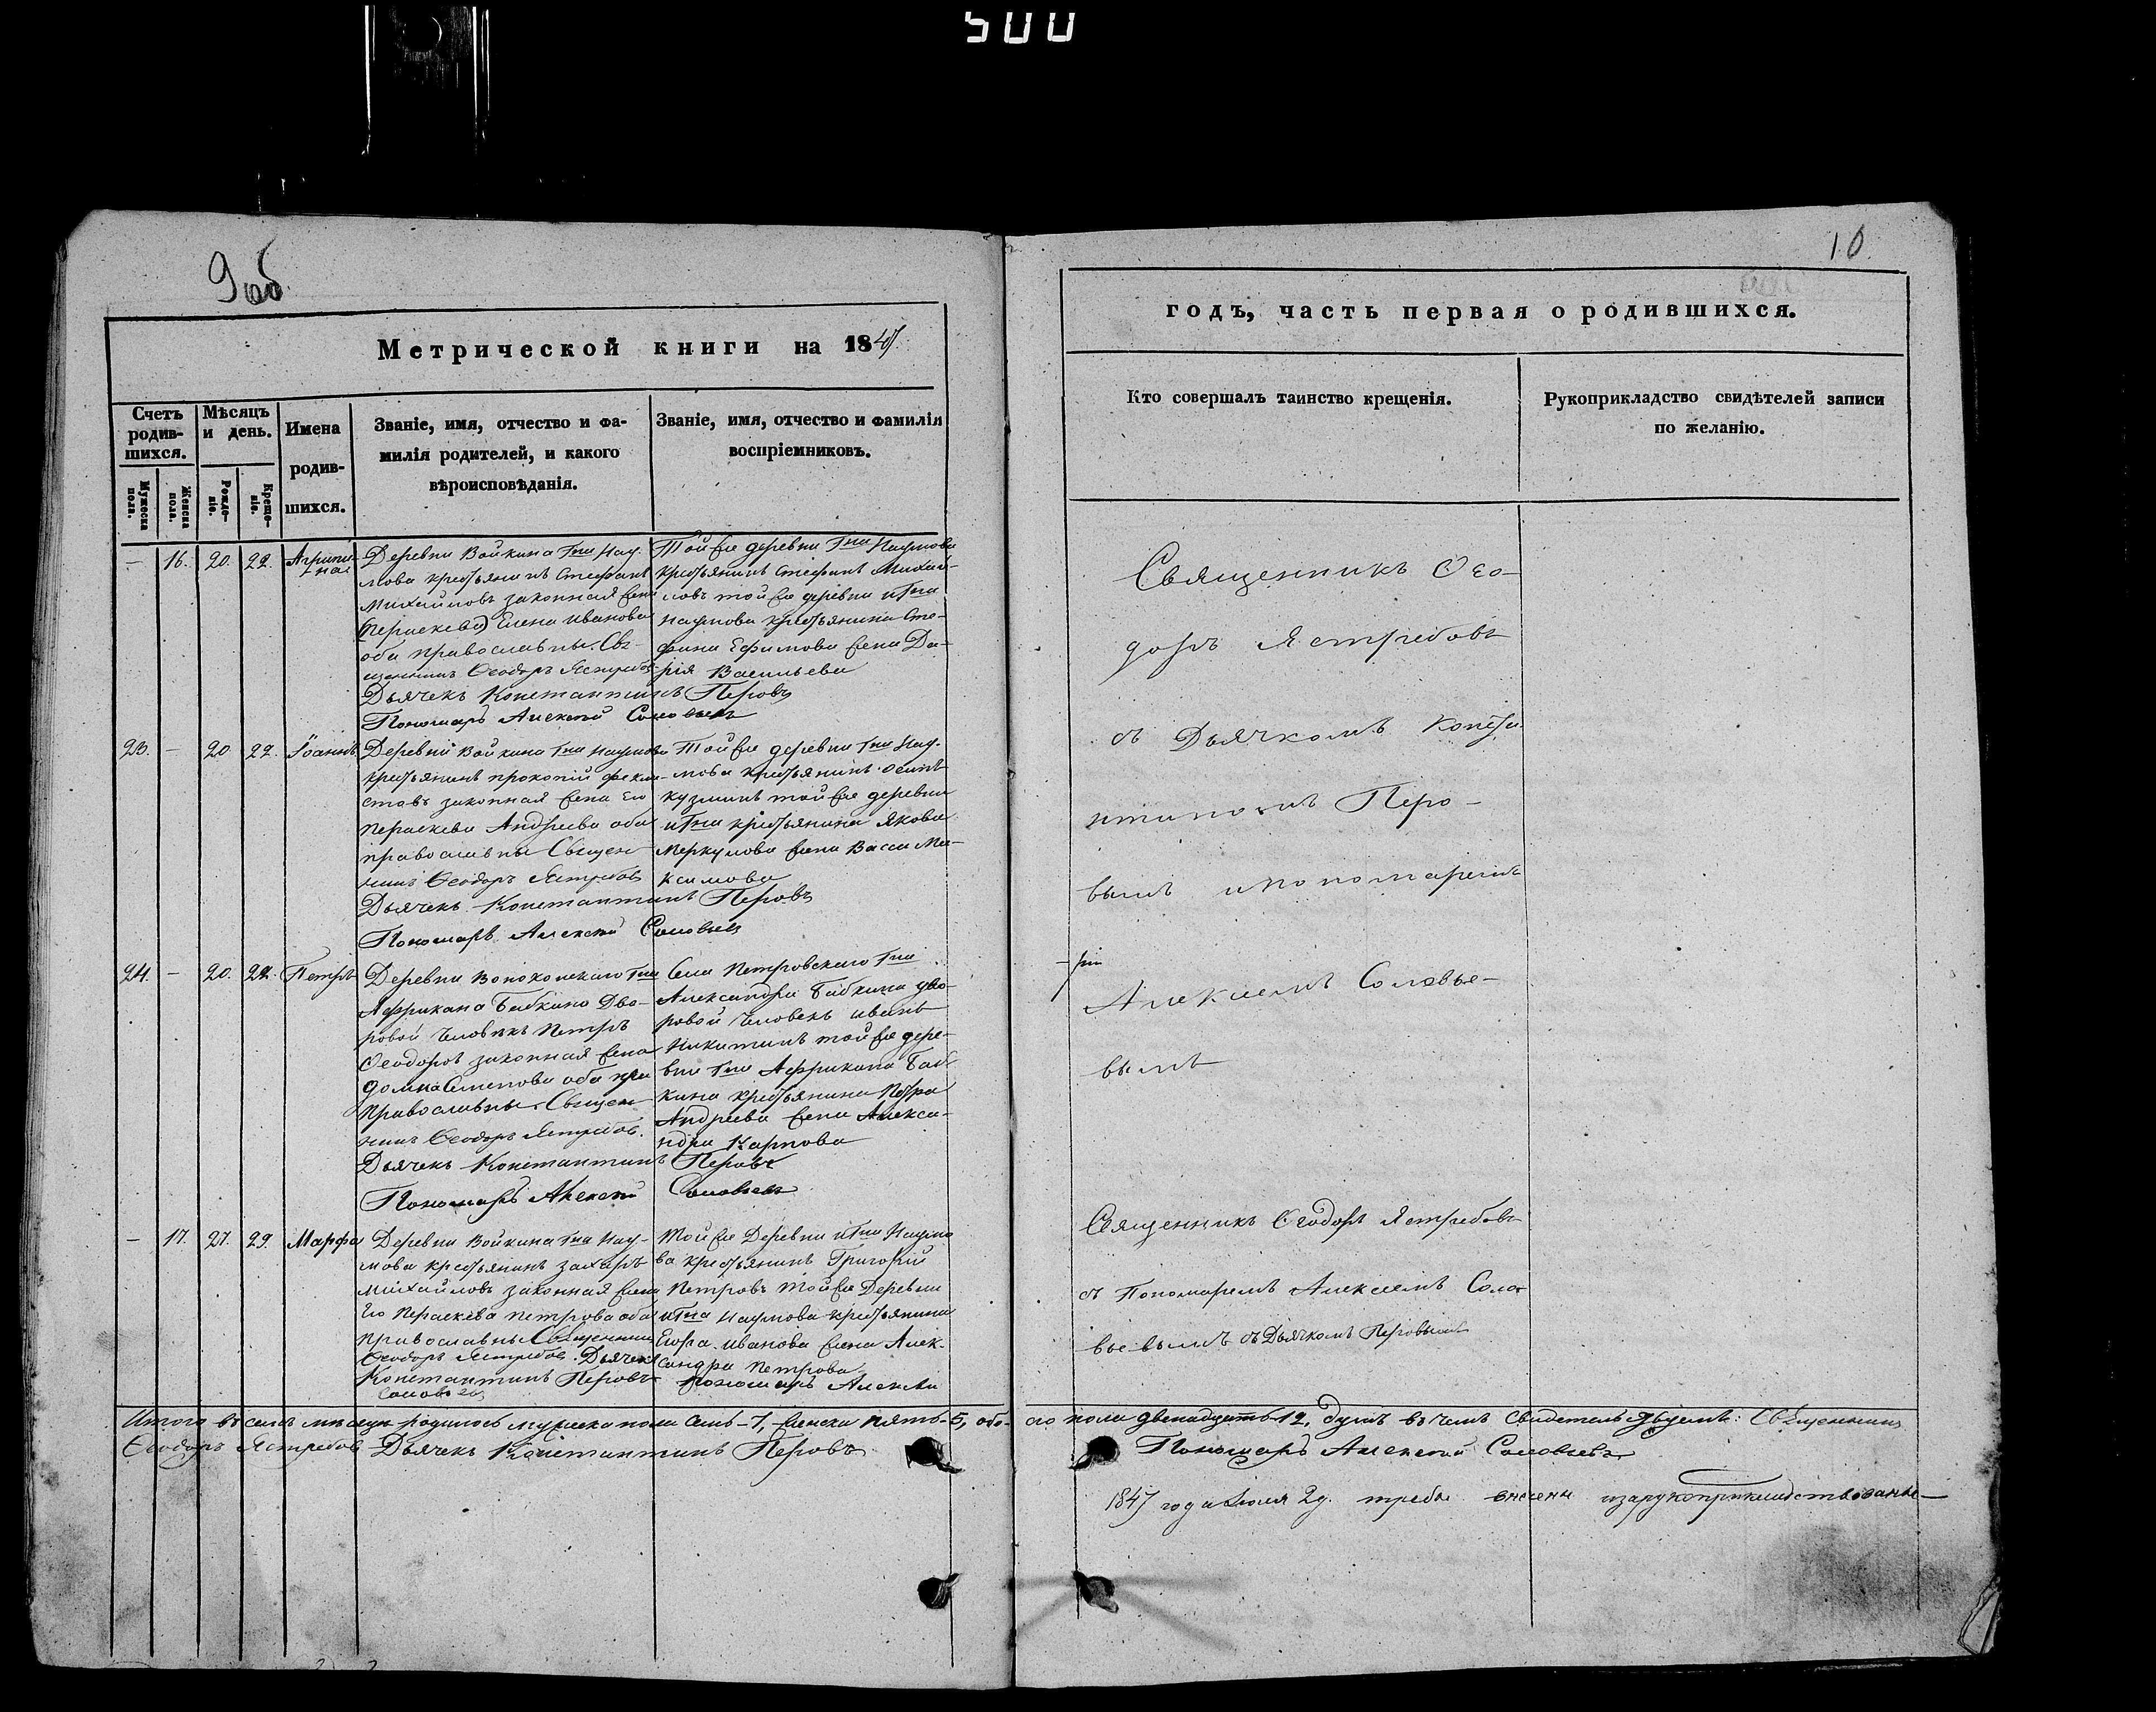 500
9 об
10.
Метрической книги на 1847
годъ, часть первая о родившихся.
Счетъ родив-
шихся.
Мужеска пола.
Женска пола.
Мѣсяцъ и день.
Рожде-
ніе.
Креще-
ніе.
Имена
родив-
шихся.
Званіе, имя, отчество и фа-
милія родителей, и какого
вѣроисповѣданія.
Званіе, имя, отчество и фамилія
воспріемниковъ.
Кто совершалъ таинство крещенія.
Рукоприкладство свидѣтелей записи
по желанію.
— 16. 20. 22. Агрипи-
на
Деревни Войкина Гна Нау-
мова крестьянинъ Стефанъ
Михайловъ законная жена
(Параскева) Елена Иванова
оба православны. Свя-
щенникъ Ѳеодоръ Ястребовъ
Дьячекъ Константинъ Перовъ
Пономарь Алексѣй Соловьевъ
Той же деревни Гна Наумова
крестьянинъ Стефанъ Михай-
ловъ той же деревни и Гна
Наумова крестьянина Сте-
фана Ефимова жена Да-
рія Васильева
23. — 20. 22. Іоаннъ
Деревни Войкина Гна Наумова
крестьянинъ Прокопій Феки-
стовъ законная жена Его
Параскева Андреева оба
православны Священ-
никъ Ѳеодоръ Ястребовъ
Дьячекъ Константинъ Перовъ
Пономарь Алексѣй Соловьевъ
Той же деревни Гна Нау-
мова крестьянинъ Осипъ
Кузминъ той же деревни
и Гна крестьянина Якова
Меркулова жена Васса Ма-
ксимова
24. — 20. 22. Петръ
Деревни Гна
Африкана Бабкина Дво-
ровой Человѣкъ Петръ
Ѳеодоровъ законная жена
Домна Семенова оба пра
православны. Священ-
никъ Ѳеодоръ Ястребовъ.
Дьячекъ Константинъ Перовъ
Пономарь Алексѣй Соловьевъ
Села Петровскаго Гна
Александра Бабкина дво-
ровой Человекъ Иванъ
Никитинъ той же дере-
вни Гна Африкана Баб-
кина крестьянина Петра
Андреева жена Алекса-
ндра Карпова
— 17. 27. 29. Марфа
Деревни Войкина Гна Нау-
мова крестьянинъ Захаръ
Михайловъ законная жена
Его Параскева Петрова оба
православны Священникъ
Ѳеодоръ Ястребовъ. Дьячекъ
Константинъ Перовъ Пономарь Алексѣй
Соловьевъ
Той же Деревни и Гна Наумо
ва крестьянинъ Григорій
Петровъ той же Деревни
и Гна Наумова крестьянина
Егора Иванова жена Алек-
сандра Петрова
Священникъ Ѳео-
доръ Ястребовъ
съ Дьячкомъ Конста-
нтиномъ Перо-
вымъ и пономаремъ
Алексіемъ Соловье-
вымъ
Священникъ Ѳеодоръ Ястребовъ
съ Пономаремъ Алексіемъ Соло-
вьевымъ съ Дьячкомъ Перовымъ
Итого въ семъ мѣсяцѣ родилось мужеска пола Семь-7, женска пять-5, обо- его пола двенадцать 12, душъ въ чемъ свидетельствуемъ: Священникъ
Ѳеодоръ Ястребовъ Дьячекъ Константинъ Перовъ Пономарь Алексѣй Соловьевъ
1847 года Июля 2д. требы внесены и зарукоприкладствованы